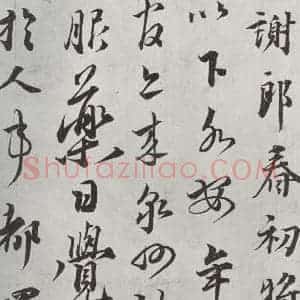 謝郎春初
以下各安年
来泉州
服藥日覺
於人事都
Shufaziliao.COM